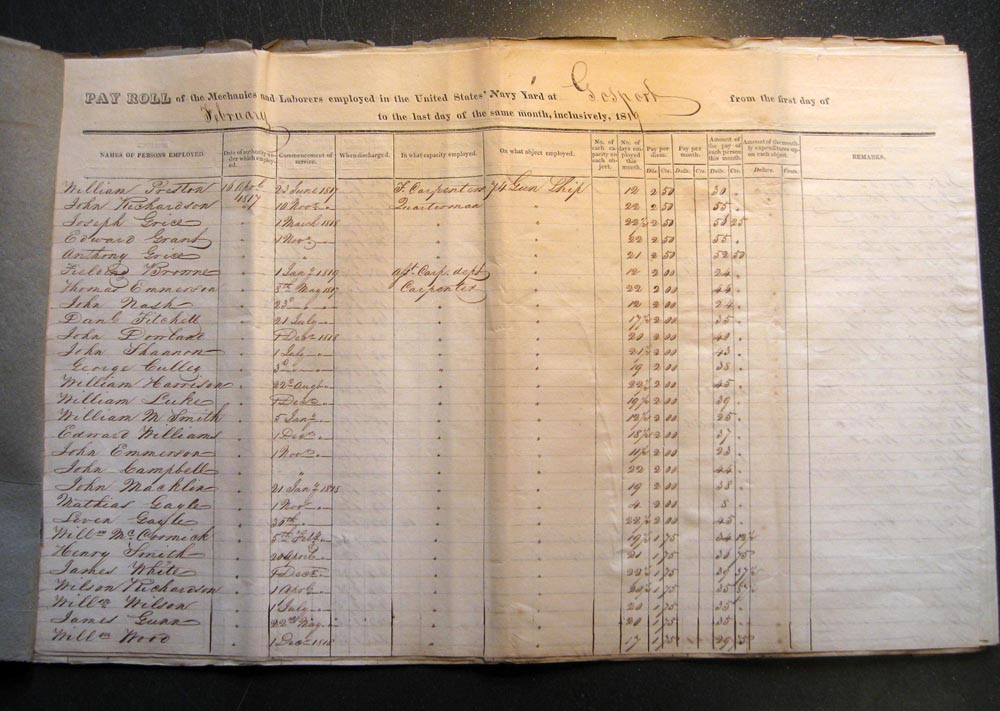 PAY ROLL of the Mechanics and Laborers employed in the United States' Navy Yard at Gosport from the first day of
February to the last day of the same month, inclusively, 181
NAMES OF PERSONS EMPLOYED. Date of authority under which employed. Commencement of service. When discharged. In what capacity employed. On what object employed. No. of each capacity on each object. No. of days employed this month. Pay per diem. Pay per month. Amount of the pay of each person this month. Amount of the monthly expenditures upon each object. REMARKS.
Dlls. Cts. Dolls. Cts. Dolls. Cts. Dollars. Cents.
William Preston 16 Apr 23 June 1817 F. Carpenters 74 Gun Ship 12 2 50 30
John Richardson 1817 10 Nov Quarterman 22 2 50 55
Joseph Grice 1 March 1818 22½ 2 50 56 25
Edward Grant 1 Nov 22 2 50 55
Anthony Grice 21 2 50 52 50
Browne 1 Jan 1819 Carp. dept 12 2 00 24
Thomas Emmerson 3th May 1817 Carpenter 22 2 00 44
John Nash 23 12 2 00 24
Danl Fitchett 21 July 17½ 2 00 35
John Dowland 1 Dec 1818 20 2 00 40
John Shannon 1 July 21½ 2 00 43
George Culley 3 19 2 00 38
William Harrison 22 Augt 22½ 2 00 45
William Luke 1 Dec 19½ 2 00 39
William M Smith 5 Jan 12½ 2 00 25
Edward Williams 1 Dec 18½ 2 00 37
John Emmerson 1 Nov 11½ 2 00 23
John Campbell " 22 2 00 44
John Macklin 21 Jan 1818 19 2 00 38
Mathias Gayle 1 Nov 4 2 00 8
Leven Gayle 30th 22½ 2 00 45
Willm McCormick 5th Feb 19½ 1 75 34 12½
Henry Smith 20 April 21 1 75 36 75
James White 1 Dec 22½ 1 75 39 37½
Wilson Richardson 1 Apr 1 75 35
Willm Wilson 1 July 20 1 75 35
James Gunn 22nd May 20 1 75 35
Willm Wood 1 Dec 1818 17 1 75 29 75